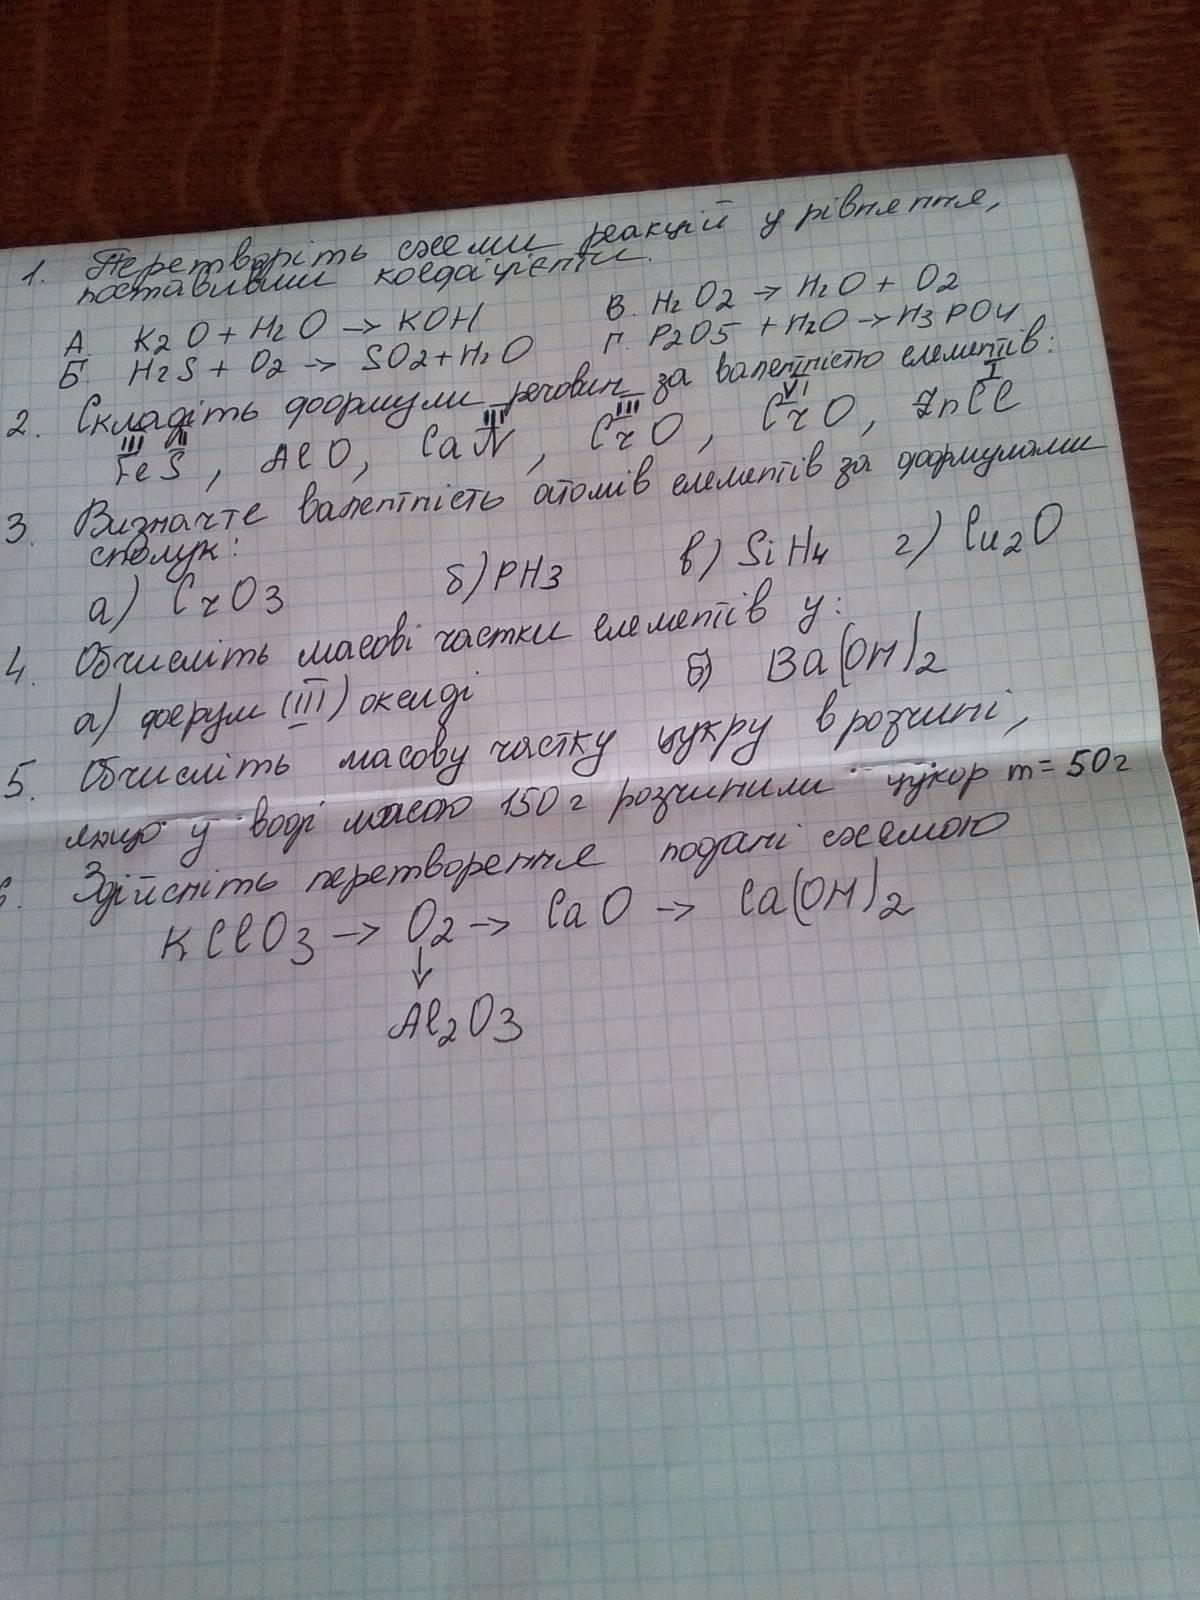 1. Перетворіть схеми реакцій у рівняння,
поставивши коефіцієнти.
А. K2O + H2O → KOH В. H2O2 → H2O + O2
Б. H2S + O2 → SO2 + H2O Г. P2O5 + H2O → H3PO4
2. Складіть формули речовин за валентністю елементів:
III II III III VI I
FeS, AlO, CaN, CrO, CrO, ZnCl
3. Визначте валентність атомів елементів за формулами
сполук:
а) CrO3 б) PH3 в) SiH4 г) Cu2O
4. Обчисліть масові частки елементів у:
а) ферум (III) оксиді б) Ba(OH)2
5. Обчисліть масову частку цукру в розчині,
якщо у воді масою 150 г розчинили цукор m = 50 г
6. Здійсніть перетворення подані схемою
KClO3 → O2 → CaO → Ca(OH)2
↓
Al2O3